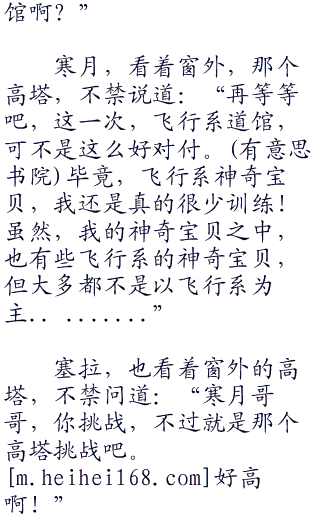 馆啊？”
寒月，看着窗外，那个
高塔，不禁说道：“再等等
吧，这一次，飞行系道馆，
可不是这么好对付。(有意思
书院)毕竟，飞行系神奇宝
贝，我还是真的很少训练！
虽然，我的神奇宝贝之中，
也有些飞行系的神奇宝贝，
但大多都不是以飞行系为
主.. .......”
塞拉，也看着窗外的高
塔，不禁问道：“寒月哥
哥，你挑战，不过就是那个
高塔挑战吧。
[m.heihei168.com]好高
啊！”